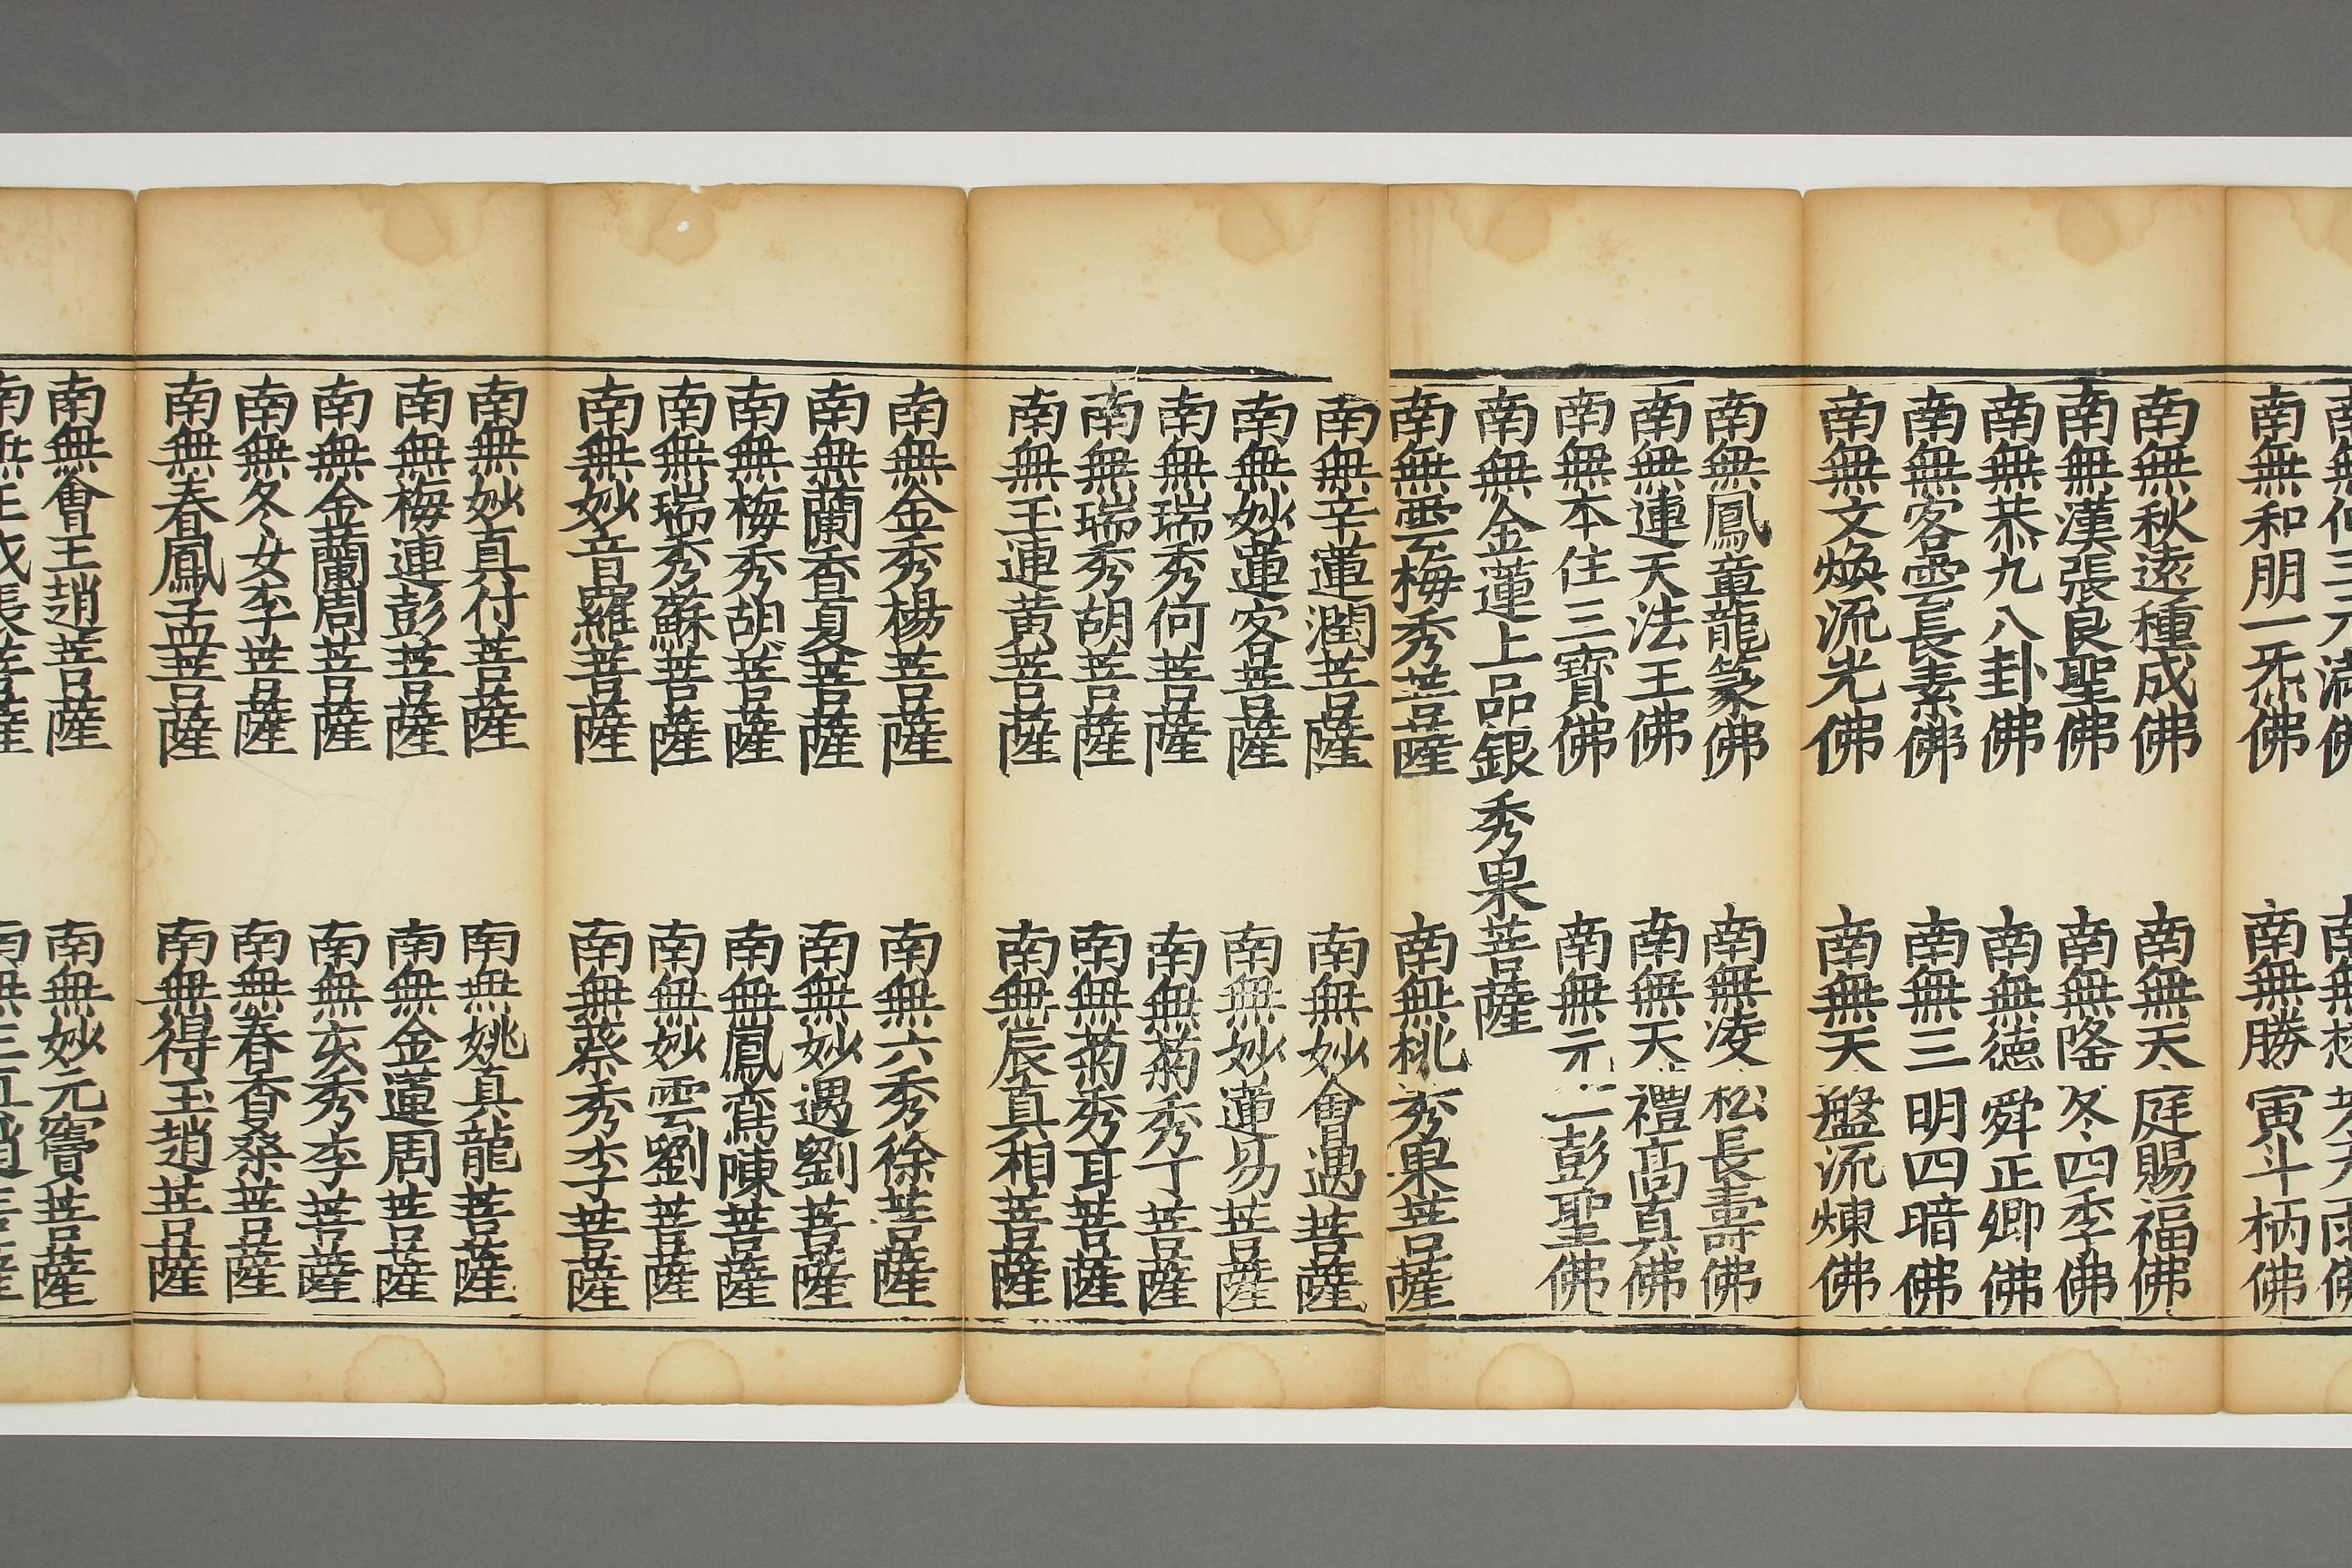 南無和朋一炁佛
南無勝寅斗柄佛
南無秋遠種成佛
南無天庭賜福佛
南無漢張良聖佛
南無隆冬四季佛
南無恭九八卦佛
南無德舜正卿佛
南無客雲長素佛
南無三明四暗佛
南無文煥流光佛
南無天盤流煉佛
南無鳳童龍篆佛
南無凌松長壽佛
南無連天法王佛
南無天禮髙真佛
南無本住三寶佛
南無元二彭聖佛
南無金蓮上品銀秀果菩薩
南無雲梅秀菩薩
南無桃秀果菩薩
南無辛蓮潤菩薩
南無妙會遇菩薩
南無妙蓮客菩薩
南無妙蓮易菩薩
南無瑞秀何菩薩
南無菊秀丁菩薩
南無瑞秀胡菩薩
南無菊秀耳菩薩
南無玉連黃菩薩
南無辰真相菩薩
南無金秀楊菩薩
南無六秀徐菩薩
南無蘭香夏菩薩
南無妙遇劉菩薩
南無梅秀胡菩薩
南無鳳鸞陳菩薩
南無瑞秀蘇菩薩
南無妙雲劉菩薩
南無妙音羅菩薩
南無蔡秀李菩薩
南無妙真付菩薩
南無姚真龍菩薩
南無梅連彭菩薩
南無金蓮周菩薩
南無金蘭周菩薩
南無亥秀李菩薩
南無冬女李菩薩
南無春香桑菩薩
南無春鳳孟菩薩
南無得玉趙菩薩
南無會王趙菩薩
南無妙元竇菩薩